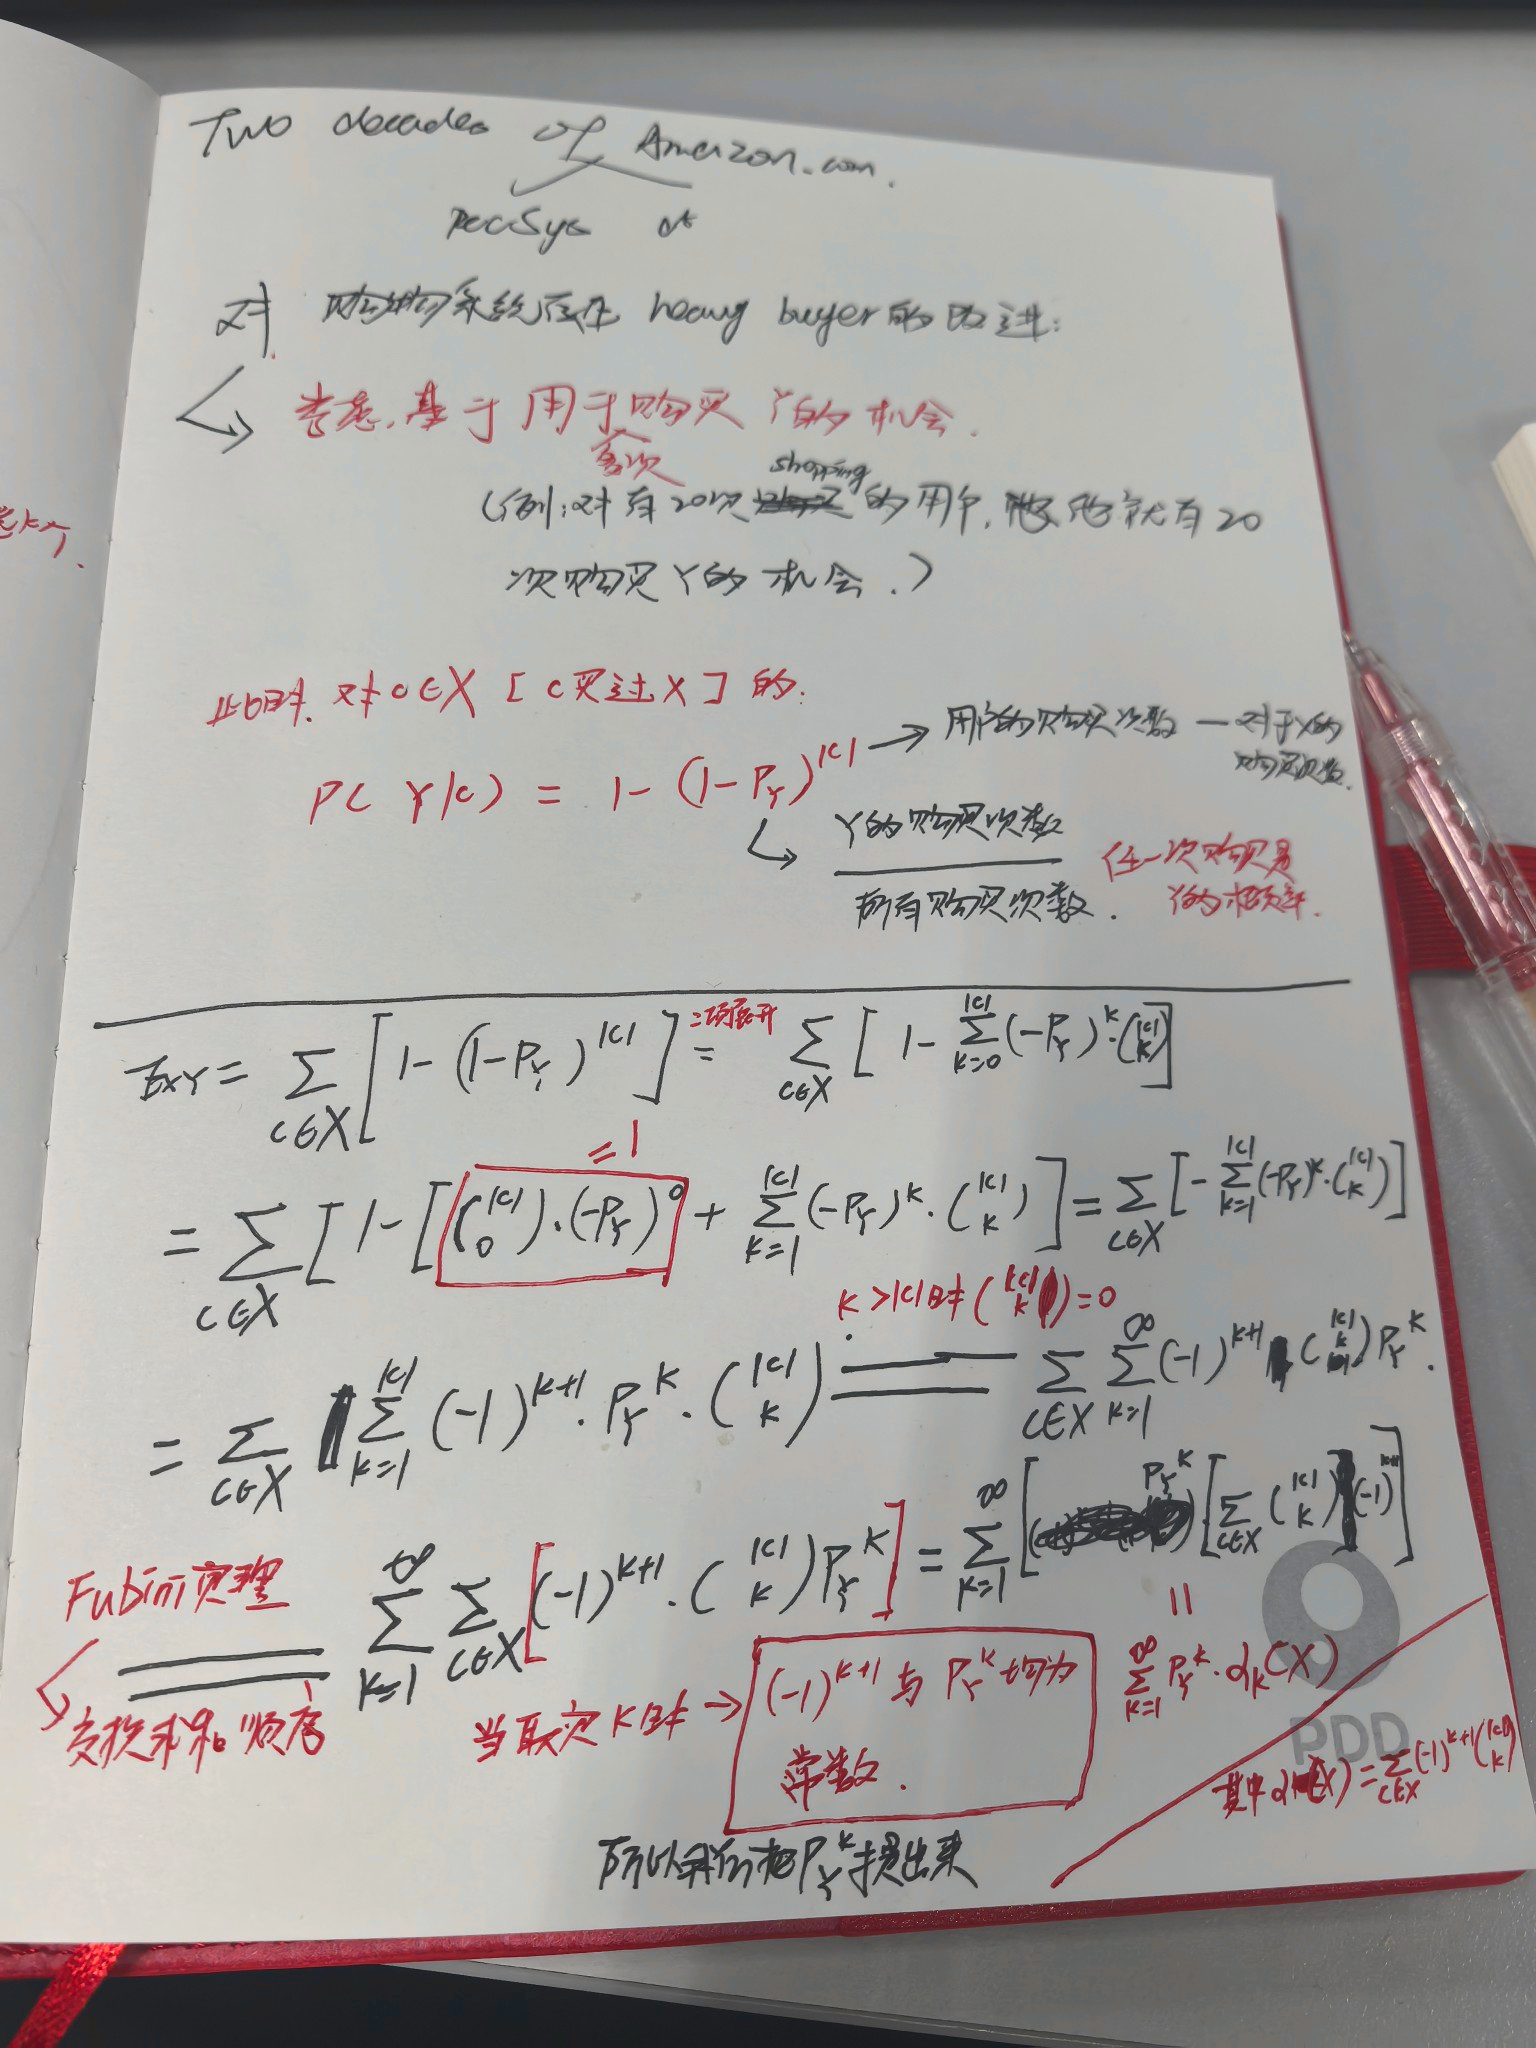 Two decades of Amazon.com.
RecSys at
对 购物系统存在 heavy buyer的改进:
考虑.基于用于购买Y的机会.
客次
shopping
(例:对有20次的用户,他就有20
次购买Y的机会.)
此时.对c∈X [c买过X]的.
P(Y|c) = 1-(1-P_Y)^{|c|} → 用户的购买次数 — 对于Y的
购买次数
↳ Y的购买次数
所有购买次数.
任一次购买是
Y的概率.
E_{XY} = Σ_{c∈X} [1-(1-P_Y)^{|c|}] = 二项展开 Σ_{c∈X} [1-Σ_{k=0}^{|c|}(-P_Y)^k·(|c| k)]
=1
= Σ_{c∈X} [1-[(|c| 0)·(-P_Y)^0 + Σ_{k=1}^{|c|}(-P_Y)^k·(|c| k)] = Σ_{c∈X} [-Σ_{k=1}^{|c|}(-P_Y)^k·(|c| k)]
k>|c|时(|c| k)=0
= Σ_{c∈X} Σ_{k=1}^{|c|} (-1)^{k+1}·P_Y^k·(|c| k) = Σ_{c∈X} Σ_{k=1}^{∞} (-1)^{k+1} (|c| k) P_Y^k.
Fubini定理
= Σ_{k=1}^{∞} Σ_{c∈X} [(-1)^{k+1}·(|c| k) P_Y^k] = Σ_{k=1}^{∞} [P_Y^k [Σ_{c∈X} (|c| k) (-1)^{k+1}]]
交换求和顺序
当取定k时→ (-1)^{k+1}与P_Y^k均为
常数.
=
Σ_{k=1}^{∞} P_Y^k·α_k(X)
PDD
其中α_k(X)=Σ_{c∈X}(-1)^{k+1}(|c| k)
所以我们把P_Y^k提出来